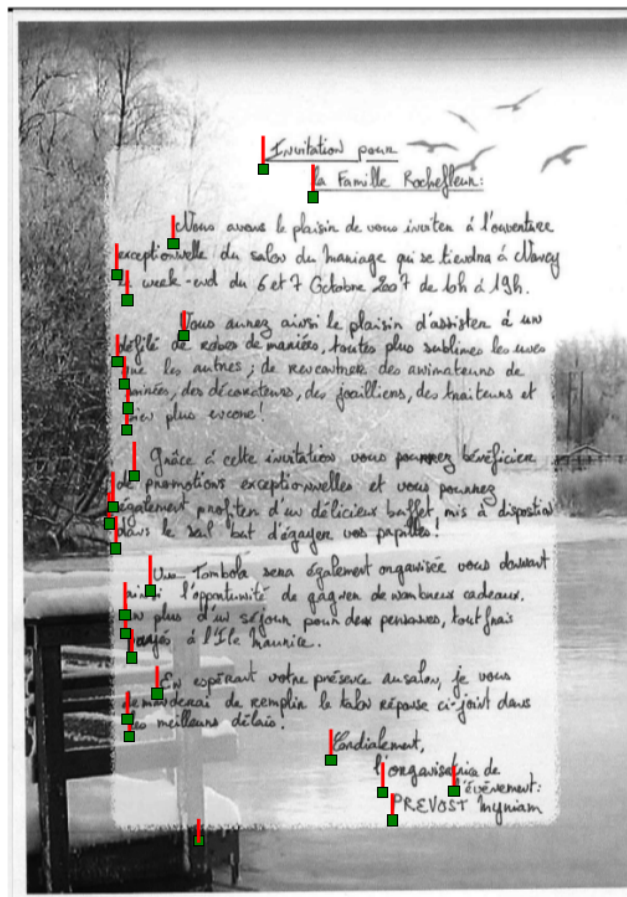 Invitation pour
la Famille Rochefleur:
Nous avons le plaisir de vous inviter à l'ouverture
exceptionnelle du salon du mariage qui se tiendra à Nancy
le week-end du 6 et 7 Octobre 2007 de 10h à 19h.
Vous aurez ainsi le plaisir d'assister à un
défilé de robes de mariées, toutes plus sublimes les unes
que les autres; de rencontrer des animateurs de
soirées, des décorateurs, des joailliers, des traiteurs et
bien plus encore!
Grâce à cette invitation vous pourrez bénéficier
de promotions exceptionnelles et vous pourrez
également profiter d'un délicieux buffet mis à dispostion
dans le seul but d'égayer vos papilles!
Une Tombola sera également organisée vous donnant
ainsi l'opportunité de gagner de nombreux cadeaux.
En plus d'un séjour pour deux personnes, tout frais
payés à l'Ile Maurice.
En espérant votre présence au salon, je vous
demanderai de remplir le talon réponse ci-joint dans
les meilleurs délais.
Cordialement,
l'organisatrice de
l'événement:
PREVOST Myriam